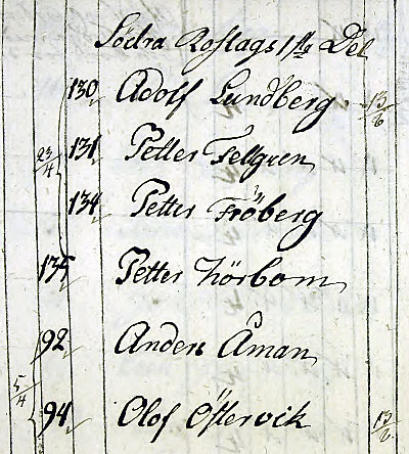 Södra Roslags 1sta Del
130 Adolf Lundberg 13/6
131 Petter Fellgren
23/4
134 Petter Fröberg
135 Petter Hörbom
92 Anders Åman
5/4
94 Olof Öftervik 13/6